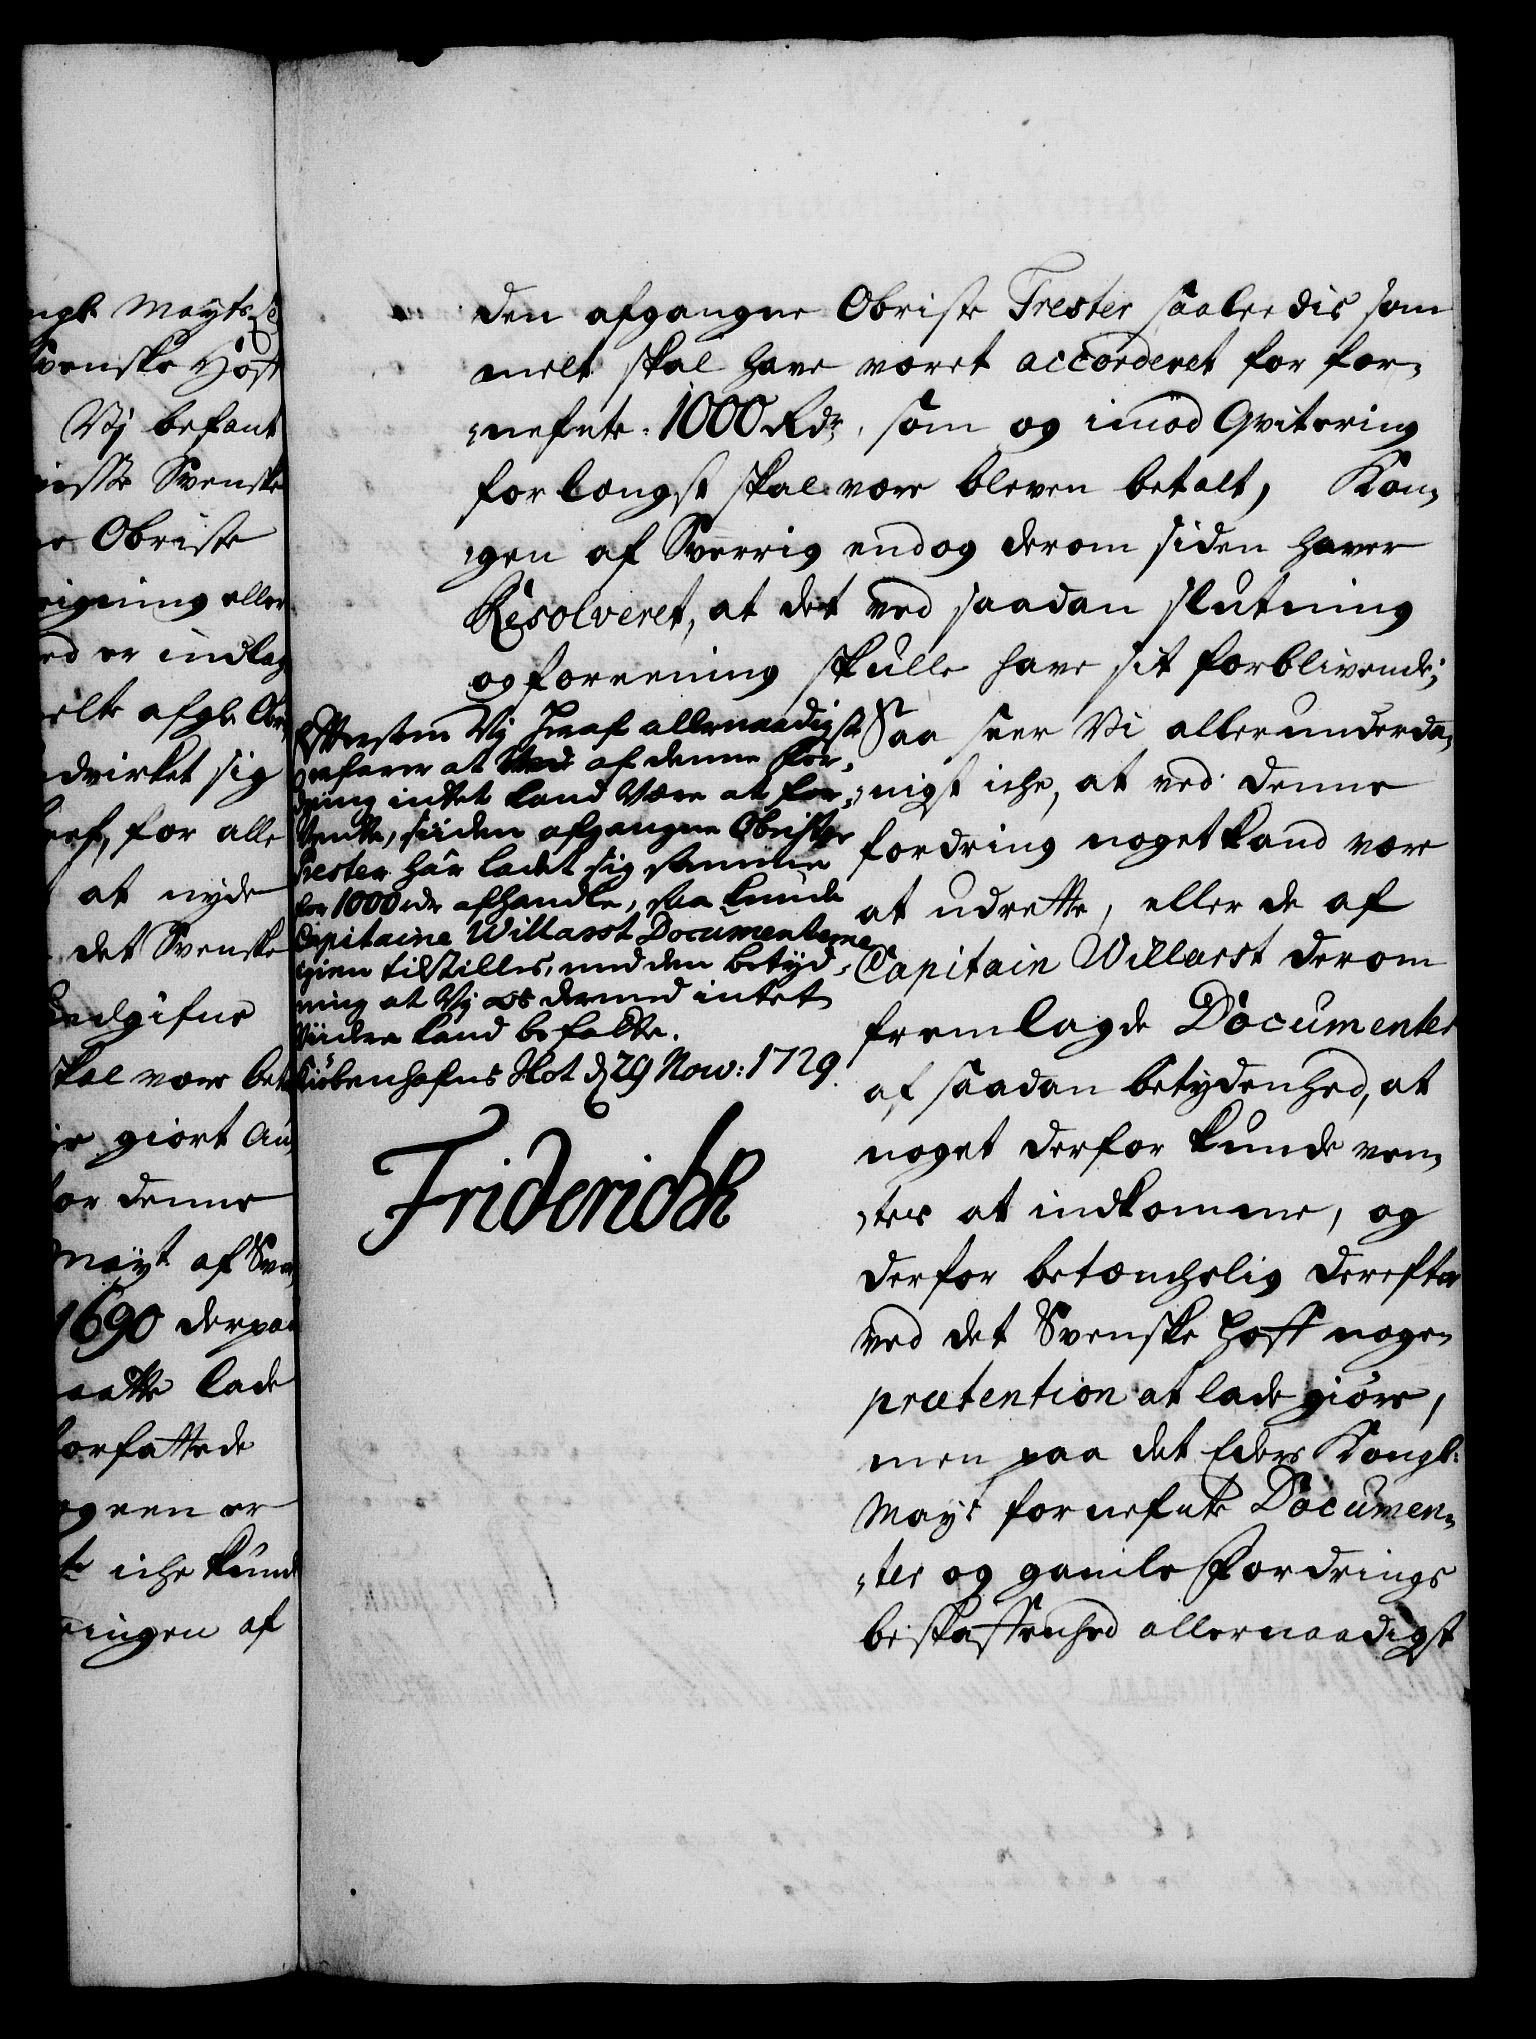 ngl. Mayts
Svenske Hoff
Vy befant
Svenske
Obriste
eller
ed er indlag
afgl. Obr
dvirket sig
for alle
at nyde
det Svenske
skal være bet
giort An
for denne
Mayt af Sve
1690 derpaa
maatte lade
forfattede
ogeen er
iche kund
ringen af
den afgangne Obriste Trester saaledis som
melt skal have været accorderet for for-
nefnte 1000 Rdr, som og imod Qvitering
forlængst skal være bleven betalt, Kon-
gen af Sverrig endog derom siden haver
Resolveret, at det ved saadan slutning
og forening skulle have sit forblivende;
Saa seer Vi allerunderda-
nigst iche, at ved denne
fordring noget kand være
at udrette, eller de af
Capitain Willarst derom
fremlagde Documenter
af saadan betydenhed, at
noget derfor kunde ven-
tes at indkomme, og
derfor betænchelig derefter
ved det Svenske Hoff nogen
prætention at lade giøre,
men paa det Eders Kongl:
Mayt fornefnte Documen-
ter og gamle Fordrings
beskaffenhed allernaadigst
Eftersom Vy heraf allernaadigst
erfarer at af denne For-
dring indtet kand være at for-
vente, siden afgangne Obrister
Trester har ladet sig samme
for 1000 rdr afhandle, saa kunde
Capitaine Willarst Documenterne
igien tilstilles, med den betyd-
ning at Vy os dermed intet
viidere kand befatte.
Kiøbenhafns Slot d 29 Nov: 1729.
Friderich R